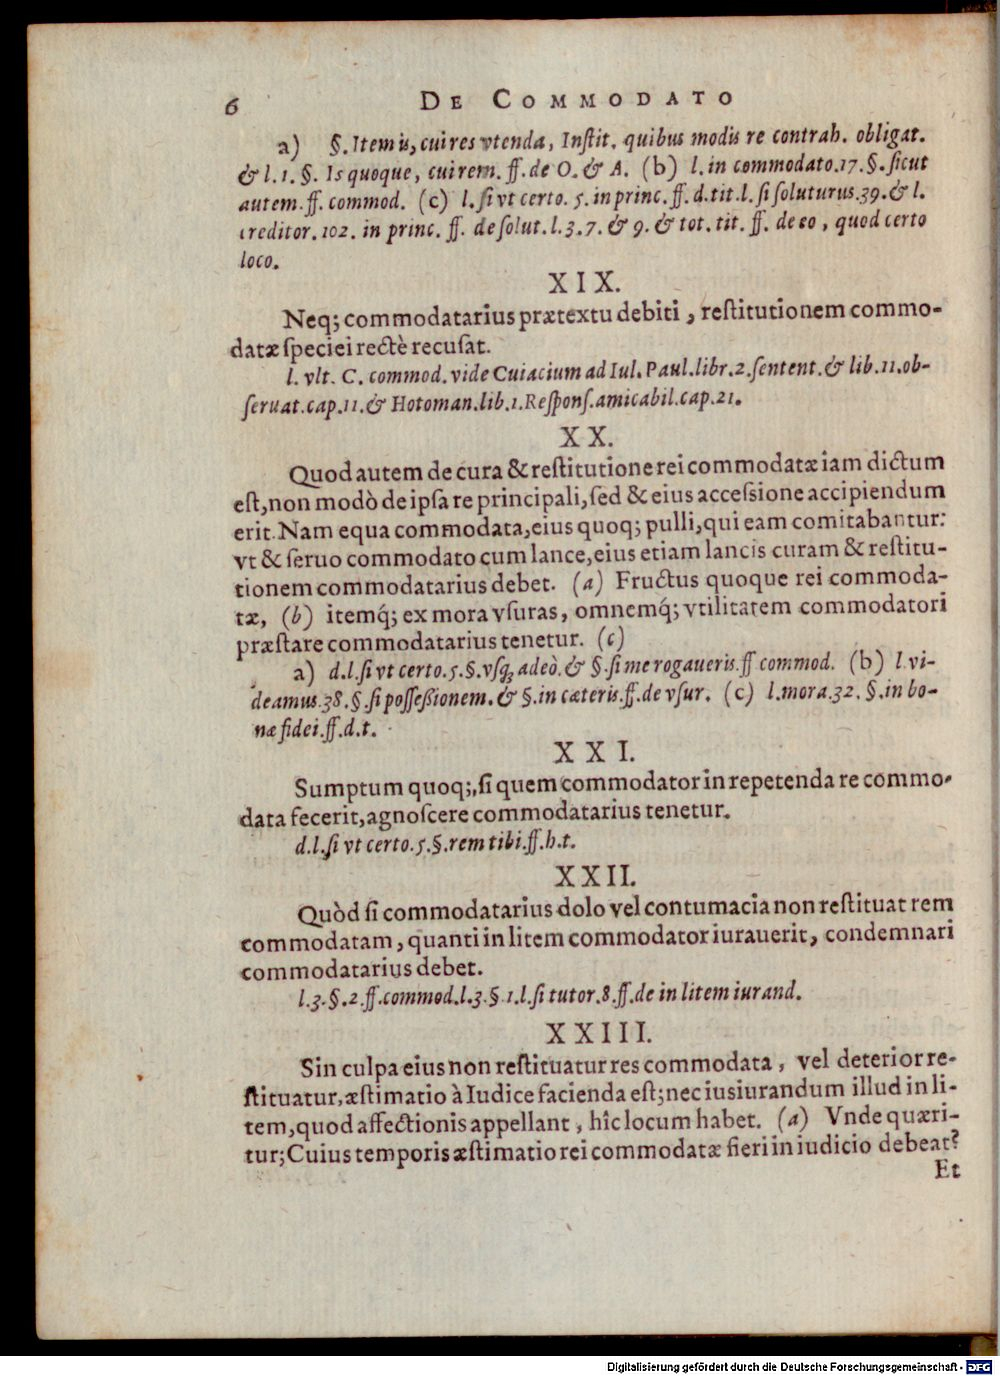 6 DE COMMODATO
a) §. Item is, cui res vtenda, Instit. quibus modis re contrah. obligat.
& l. 1. §. Is quoque, cui rem. ff. de O. & A. (b) l. in commodato. 17. §. sicut
autem. ff. commod. (c) l. si vt certo. 5. in princ. ff. d. tit. l. si soluturus. 39. & l.
creditor. 102. in princ. ff. de solut. l. 3. 7. & 9. & tot. tit. ff. de eo, quod certo
loco.
XIX.
Neq; commodatarius prætextu debiti, restitutionem commo-
datæ speciei rectè recusat.
l. vlt. C. commod. vide Cuiacium ad Iul. Paul. libr. 2. sentent. & lib. 11. ob-
seruat. cap. 11. & Hotoman. lib. 1. Respons. amicabil. cap. 21.
XX.
Quod autem de cura & restitutione rei commodatæ iam dictum
est, non modò de ipsa re principali, sed & eius accessione accipiendum
erit. Nam equa commodata, eius quoq; pulli, qui eam comitabantur:
vt & seruo commodato cum lance, eius etiam lancis curam & restitu-
tionem commodatarius debet. (a) Fructus quoque rei commoda-
tæ, (b) itemq́; ex mora vsuras, omnemq́; vtilitatem commodatori
præstare commodatarius tenetur. (c)
a) d. l. si vt certo. 5. §. vsq; adeò. & §. si me rogaueris. ff commod. (b) l. vi-
deamus. 38. §. si possessionem. & §. in cæteris. ff. de vsur. (c) l. mora. 32. §. in bo-
næ fidei. ff. d. t.
XXI.
Sumptum quoq;, si quem commodator in repetenda re commo-
data fecerit, agnoscere commodatarius tenetur.
d. l. si vt certo. 5. §. rem tibi. ff. h. t.
XXII.
Quòd si commodatarius dolo vel contumacia non restituat rem
commodatam, quanti in litem commodator iurauerit, condemnari
commodatarius debet.
l. 3. §. 2. ff. commod. l. 3. § 1. l. si tutor. 8. ff. de in litem iurand.
XXIII.
Sin culpa eius non restituatur res commodata, vel deterior re-
stituatur, æstimatio à Iudice facienda est; nec iusiurandum illud in li-
tem, quod affectionis appellant, hîc locum habet. (a) Vnde quæri-
tur; Cuius temporis æstimatio rei commodatæ fieri in iudicio debeat?
Et
Digitalisierung gefördert durch die Deutsche Forschungsgemeinschaft - DFG